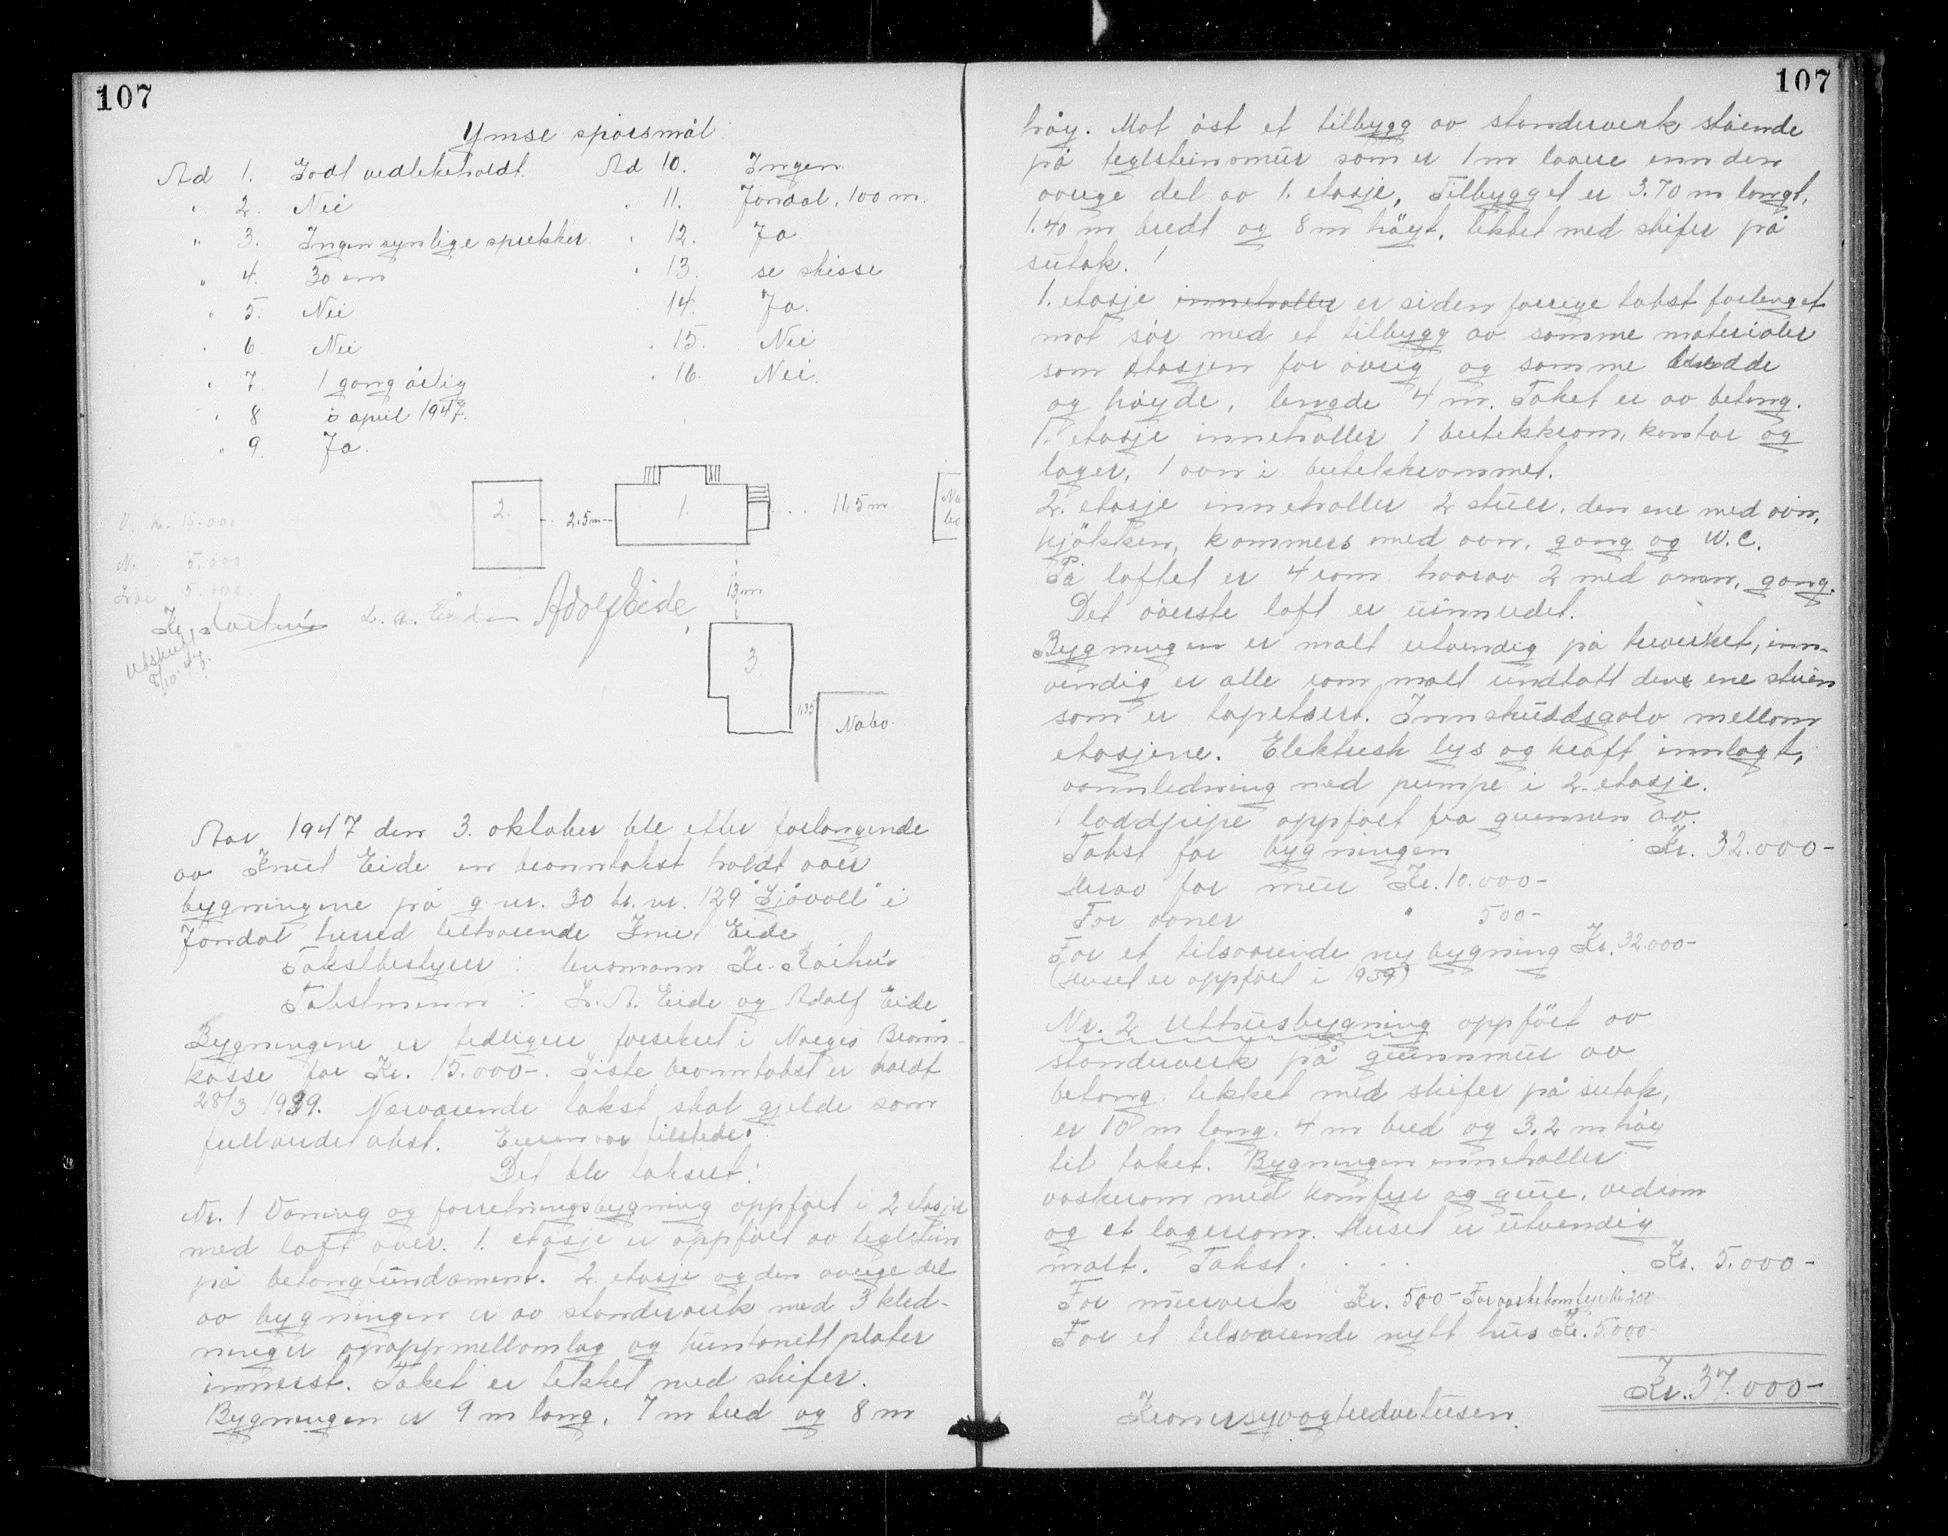 107
Ymse spörsmål:
Ad 1. Godt vedlikeholdt.
" 2. Nei
" 3. Ingen synlige sprekker
" 4. 30 cm
" 5. Nei
" 6 Nei
" 7. 1 gang årlig
" 8 i april 1947.
" 9. Ja.
Ad 10. Ingen
" 11. Jondal, 100 m.
" 12. Ja
" 13. se skisse
" 14. Ja.
" 15. Nei
" 16. Nei.
2.
2.5m
1.
11.5 m
Na
bo
13 m
3
1.35
Nabo.
V. kr. 15.000
N. 5.000
5.000
Adolf Eide
L. A. Eide
Utskrift
8/10.47.
Aar 1947 den 3. oktober ble etter forlangende
av Knut Eide en branntakst holdt over
bygningene på g.nr. 30 br.nr. 129 "Sjövoll" i
Jondal herred tilhørende Knut Eide
Takstbestyrer: lensmann Kr.
Takstmenn: L. A. Eide og Adolf Eide
Bygningene er tidligere forsikret i Norges Brann-
kasse for Kr. 15.000-. Siste branntakst er holdt
28/3 1939. Nærværende takst skal gjelde som
full verditakst. Eieren var tilstede.
Det ble taksert:
Nr. 1 Våning og forretningsbygning oppfört i 2 etasjer
med loft over. 1. etasje er oppfört av teglstein
på betongfundament. 2. etasje og den övrige del
av bygningen er av standerverk med 3 kled-
ninger og papp mellomlag og huntonitt plater
innerst. Taket er tekket med skifer.
Bygningen er 9 m lang, 7 m bred og 8 m
107
höy. Mot öst et tilbygg av standerverk stående
på teglsteinsmur som er 1 m lavere enn den
övrige del av 1. etasje, Tilbygget er 3.70 m langt,
1.40 m bredt og 8 m höyt, tekket med skifer på
sutak.
1. etasje inneholder er siden forrige takst forlenget
mot sör med et tilbygg av samme materialer
som etasjen for övrig og samme bredde
og höyde, lengde 4 m. Taket er av betong.
1. etasje inneholder 1 butikkrom, kontor og
lager, 1 ovn i butikkrommet.
2. etasje inneholder 2 stuer, den ene med ovn,
kjökken, kammers med ovn, gang og W.C.
På loftet er 4 rom hvorav 2 med ovnn, gang.
Det överste loft er uinnredet.
Bygningen er malt utvendig på treverket, inn-
vendig er alle rom malt undtatt den ene stuen
som er tapetsert. Innskuddsgolv mellom
etasjene. Elektrisk lys og kraft innlagt,
vannledning med pumpe i 2. etasje.
1 loddpipe oppfört fra grunnen av.
Takst for bygningen Kr. 32.000-
Herav for mur Kr. 10.000-
For ovner " 500-
For et tilsvarende ny bygning Kr. 32.000-
(Huset er oppfört i 1939)
Nr. 2 Uthusbygning oppfört av
standerverk på grunnmur av
betong, tekket med skifer på sutak,
er 10 m lang, 4 m bred og 3.2 m höy
til taket. Bygningen inneholder
vaskerom med komfyr og grue, vedrom
og et lagerrom. Huset er utvendig
malt. Takst. . . . Kr. 5.000-
For murverk Kr. 500- For vaskekomfyr Kr 200-
For et tilsvarende nytt hus Kr. 5.000-
Kr. 37.000-
Kronersyvogtredvetusen.